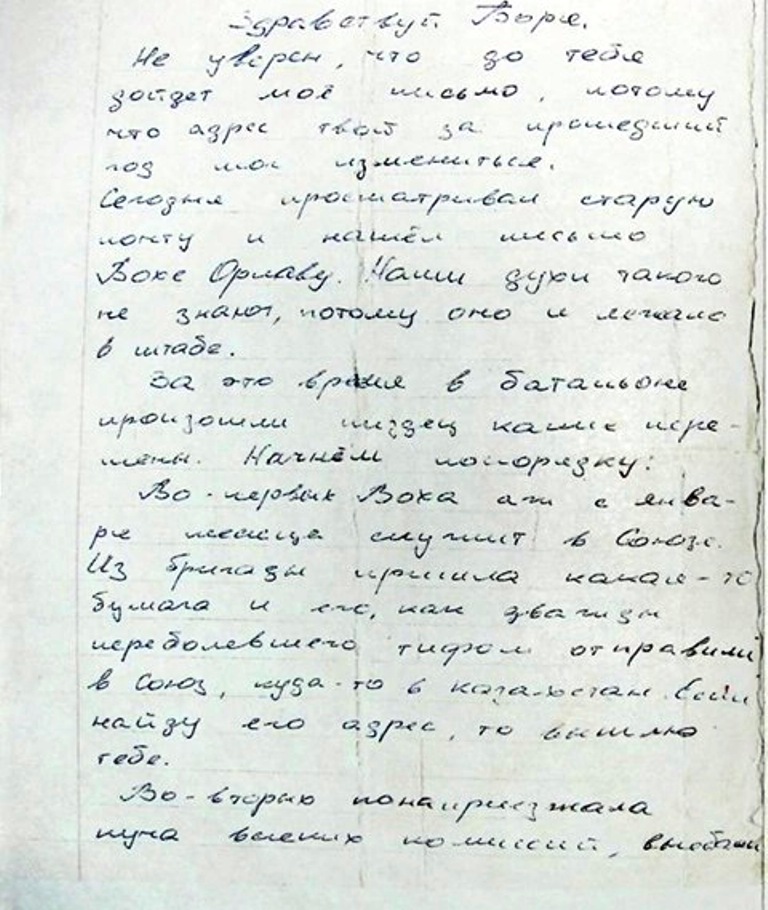 Здравствуй Боря.
Не уверен, что до тебя
дойдет моё письмо, потому
что адрес твой за прошедший
год мог измениться.
Сегодня просматривал старую
почту и нашёл письмо
Вохе Орлаву. Наши духи такого
не знают, потому оно и лежало
в штабе.
За это время в батальоне
произошли пиздец какие пере-
мены. Начнём попорядку:
Во-первых Воха аж с янва-
ре месяца служит в Союзе.
Из бригады пришла какая-то
бумага и его, как дважды
переболевшего тифом отправили
в Союз, куда-то в Казахстан. Если
найду его адрес, то вышлю
тебе.
Во-вторых понаприезжала
куча всяких комиссий,